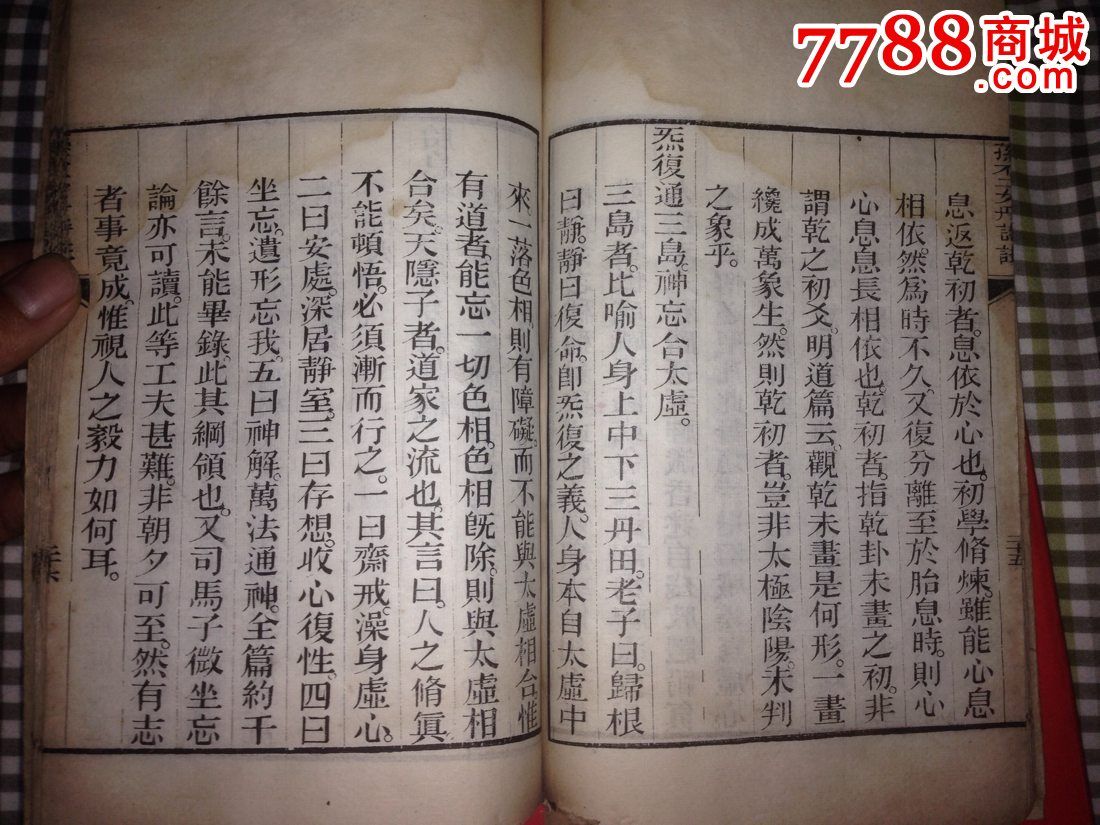 7788商城
.com
孫不二女丹詩註
息返乾初者。息依於心也。初學脩煉。雖能心息
相依。然爲時不久。又復分離至於胎息時。則心
心息息長相依也。乾初者。指乾卦未畫之初。非
謂乾之初爻。明道篇云。觀乾未畫是何形。一畫
纔成萬象生。然則乾初者。豈非太極陰陽。未判
之象乎。
炁復通三島。神忘合太虛。
三島者。比喻人身上中下三丹田。老子曰。歸根
曰靜。靜曰復命。卽炁復之義。人身本自太虛中
三十五
來。一落色相。則有障礙。而不能與太虛相合。惟
有道者。能忘一切色相。色相既除。則與太虛相
合矣。天隱子者。道家之流也。其言曰。人之脩眞
不能頓悟。必須漸而行之。一曰齋戒。澡身虛心。
二曰安處。深居靜室。三曰存想。收心復性。四曰
坐忘。遺形忘我。五曰神解。萬法通神。全篇約千
餘言。未能畢錄。此其綱領也。又司馬子微坐忘
論亦可讀。此等工夫甚難。非朝夕可至。然有志
者事竟成。惟視人之毅力如何耳。